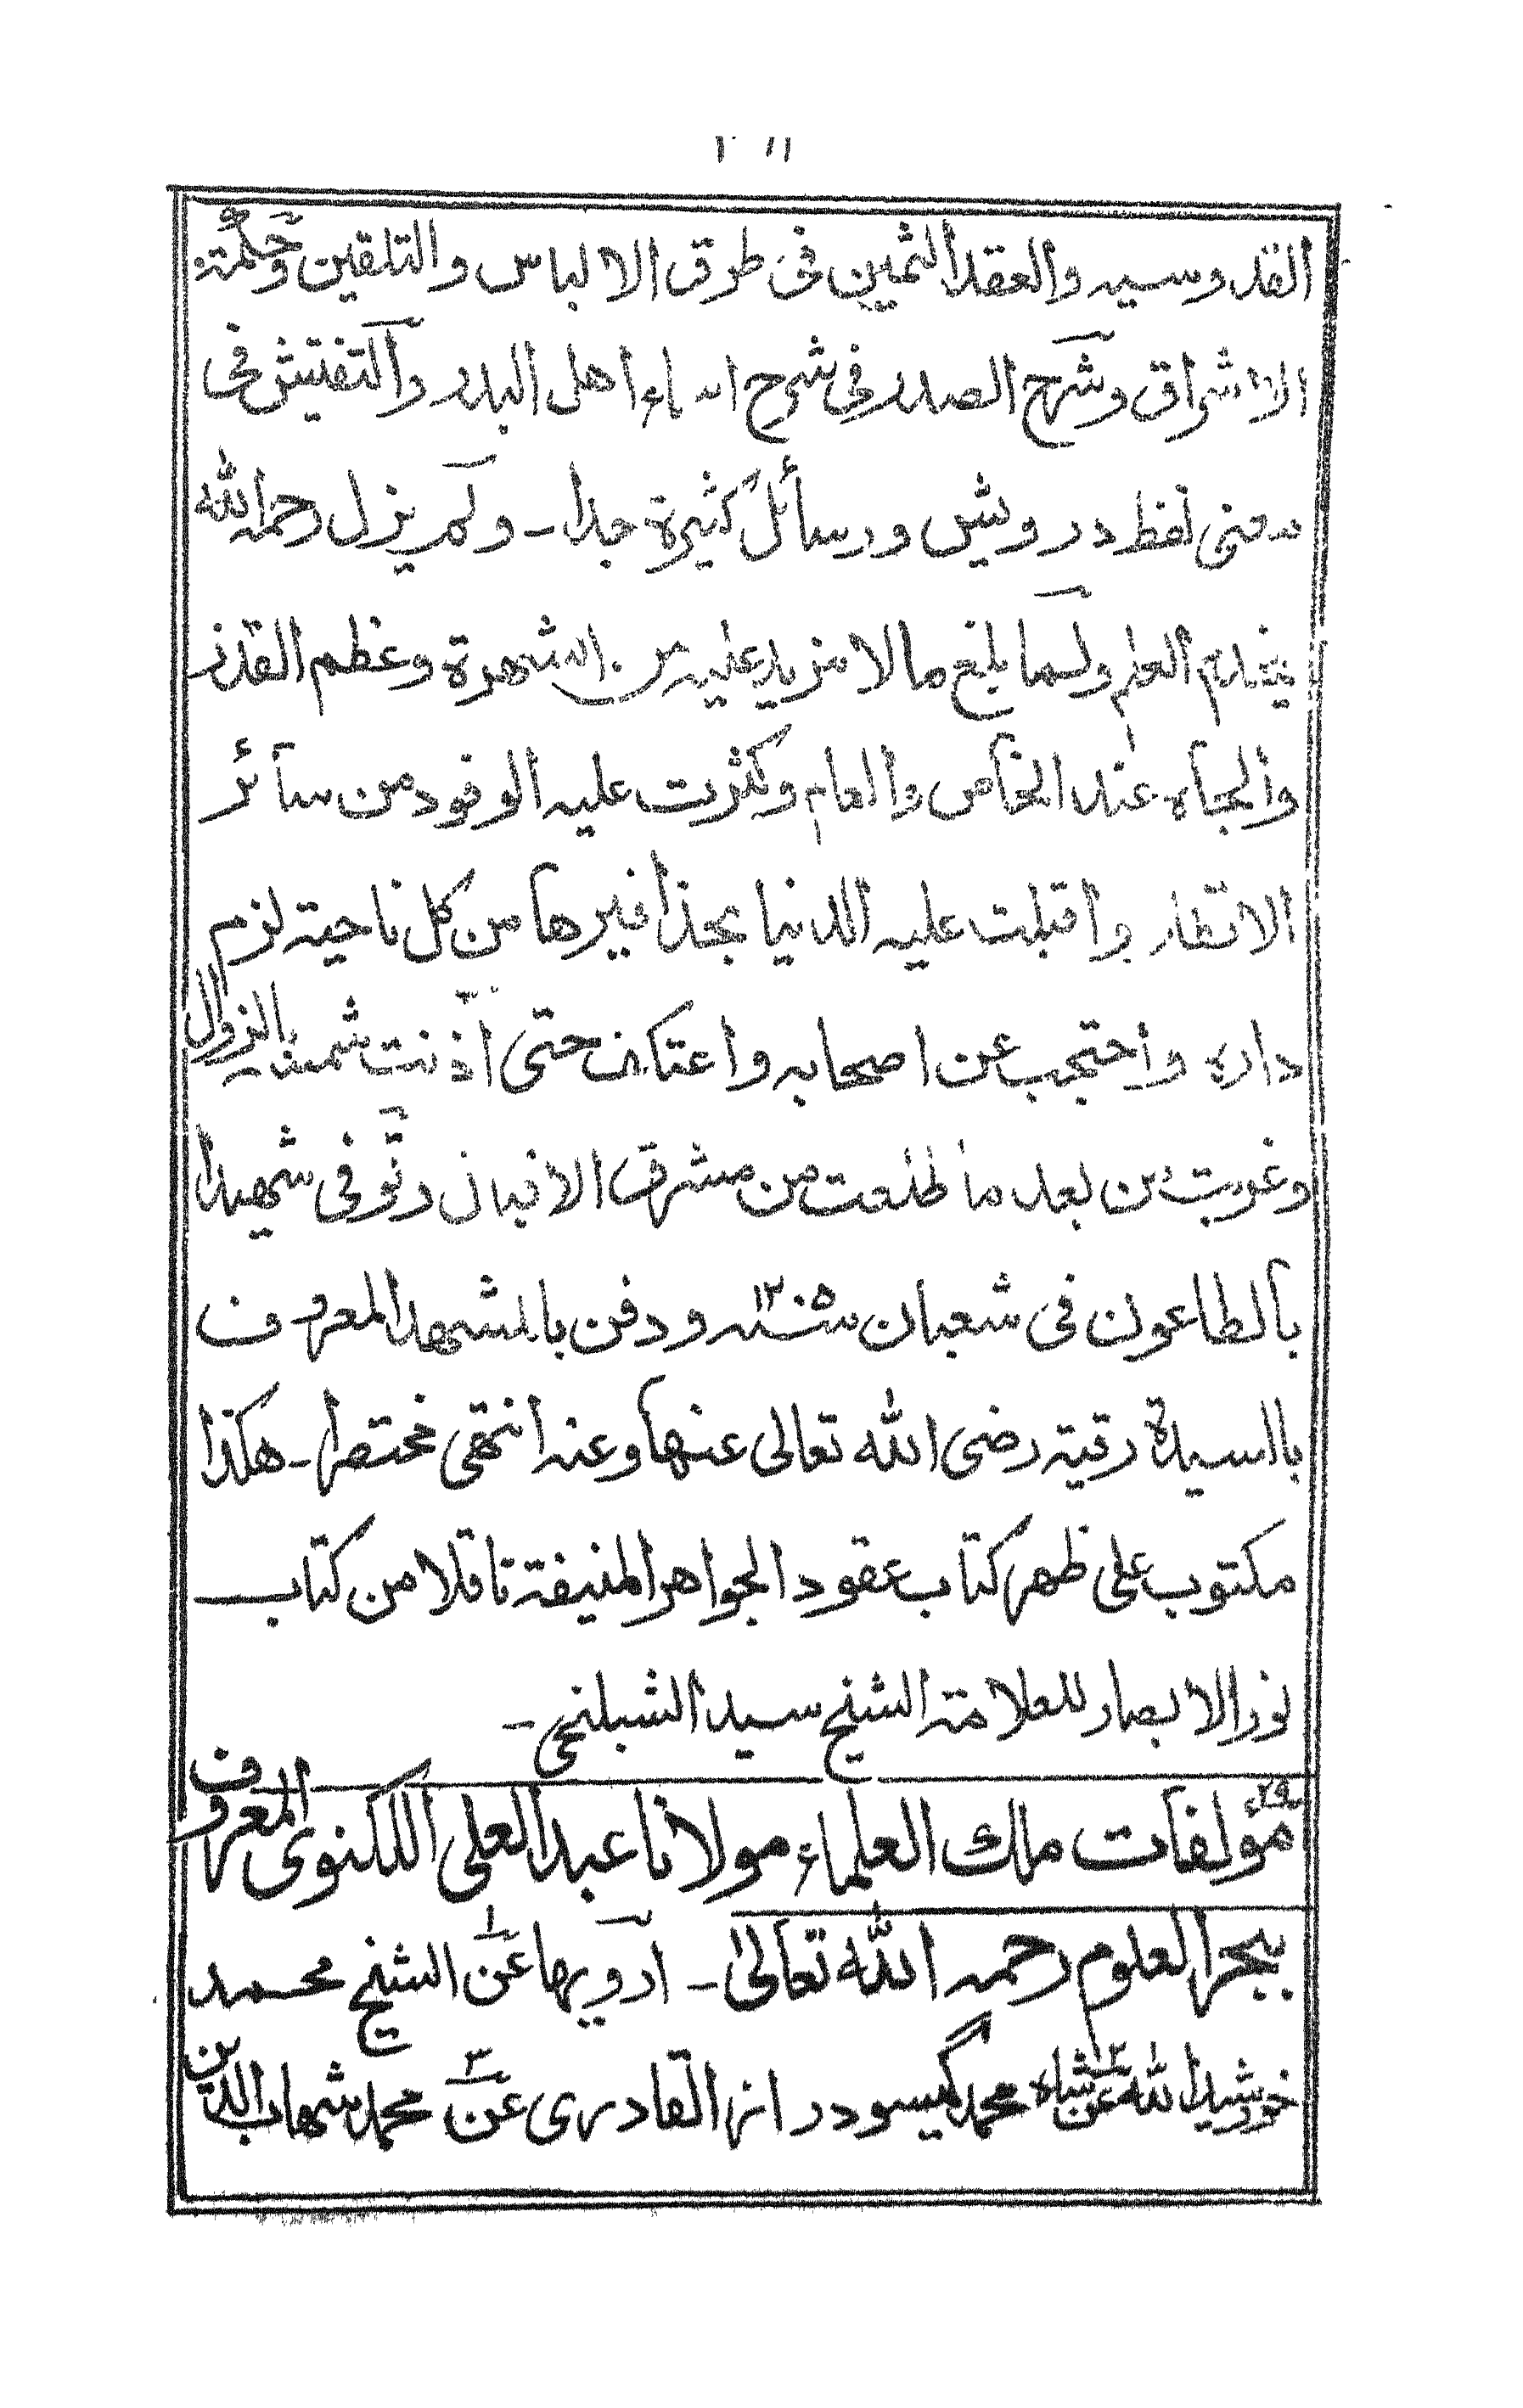 القدوسيه والعقد الثمين فى طرق الالباس والتلقين وحكمة
الاشراق وشرح الصدر فى شرح اسماء اهل البدر والتفتيش فى
معنى لفظ درويش ورسائل كثيرة جدا - ولم يزل رحمه الله
يخدم العلم ولما بلغ مالا مزيد عليه من الشهرة وعظم القدر
والجاه عند الخاص والعام وكثرت عليه الوفود من سائر
الاقطار واقبلت عليه الدنيا بحذافيرها من كل ناحية لزم
داره واحتجب عن اصحابه واعتكف حتى اذنت شمسه بالزوال
وغربت من بعد ما طلعت من مشرق الاقبال وتوفى شهيدا
بالطاعون فى شعبان سنه ١٢٠٥ ودفن بالمشهد المعروف
بالسيدة رقية رضى الله تعالى عنها وعنه انتهى مختصرا - هكذا
مكتوب على ظهر كتاب عقود الجواهر المنيفة ناقلا من كتاب
نور الابصار للعلامة الشيخ سيد الشبلنجى -
مؤلفات ملك العلماء مولانا عبد العلى اللكنوى المعروف
ببحر العلوم رحمه الله تعالىٰ - آرويها عن ١ الشيخ محمد
خورشيد الله عن ٢ شاه محمد گيسودراز القادرى عن ٣ محمد شهاب الدين